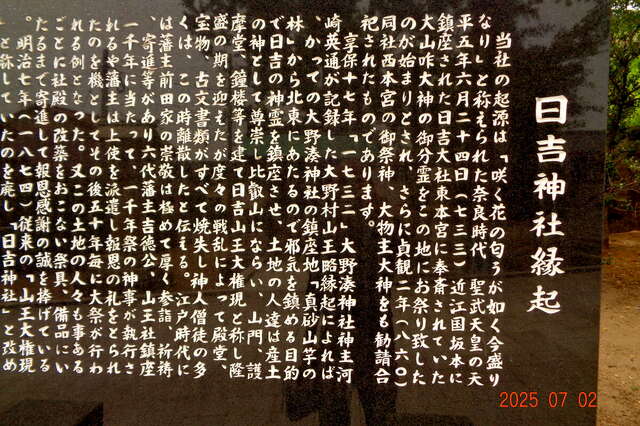 日吉神社縁起
当社の起源は「咲く花の匂うが如く今盛り
なり」と称えられた奈良時代 聖武天皇の天
平五年六月二十四日（七三三）近江国坂本に
鎮座された日吉大社東本宮に奉斎されていた
大山咋大神の御分霊をこの地にお祭り致した
のが始まりとされ、さらに貞観二年（八六〇）
同社西本宮の御祭神 大物主大神をも勧請合
祀されたものであります。
享保十七年「一七三二」大野湊神社神主河
崎英通が記録した大野村山王略縁起によれば
、かつての大野湊神社の鎮座地「真砂山竿の
林」から北東にあたるので邪気を鎮める目的
で日吉の神霊を鎮座させ、土地の人達は産土
の神として尊崇し比叡山にならい、山門、護
摩堂、鐘楼等を建て日吉山王大権現と称し隆
盛の期を迎えたが度々の戦乱によって殿堂、
宝物、古文書類がすべて焼失し神人僧徒の多
くは、この時離散したと伝える。江戸時代に
は藩主前田家の崇敬は極めて厚く参詣、祈祷
、寄進等があり六代藩主吉徳公、山王社鎮座
一千年に当たって一千年祭の神事が執行さ
れるや藩主は上使を派遣し報恩の礼をとられ
たのを機としてその後五十年毎に大祭が行わ
れる例となった。又この土地の人々も事ある
ごとに社殿の改築をおこない祭具、備品にい
たるまで寄進して報恩感謝の誠を捧げている
。明治七年（一八七四）従来の「山王大権現
」と称していたのを廃し「日吉神社」と改め
2025 07 02